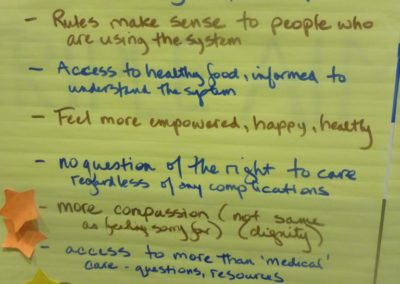 - Rules make sense to people who
are using the system
- Access to healthy food, informed to
understand the system
- Feel more empowered, happy, healthy
- no question of the right to care
regardless of any complications
- more compassion (not same
as feeling sorry for) (dignity)
- access to more than 'medical'
care - questions, resources